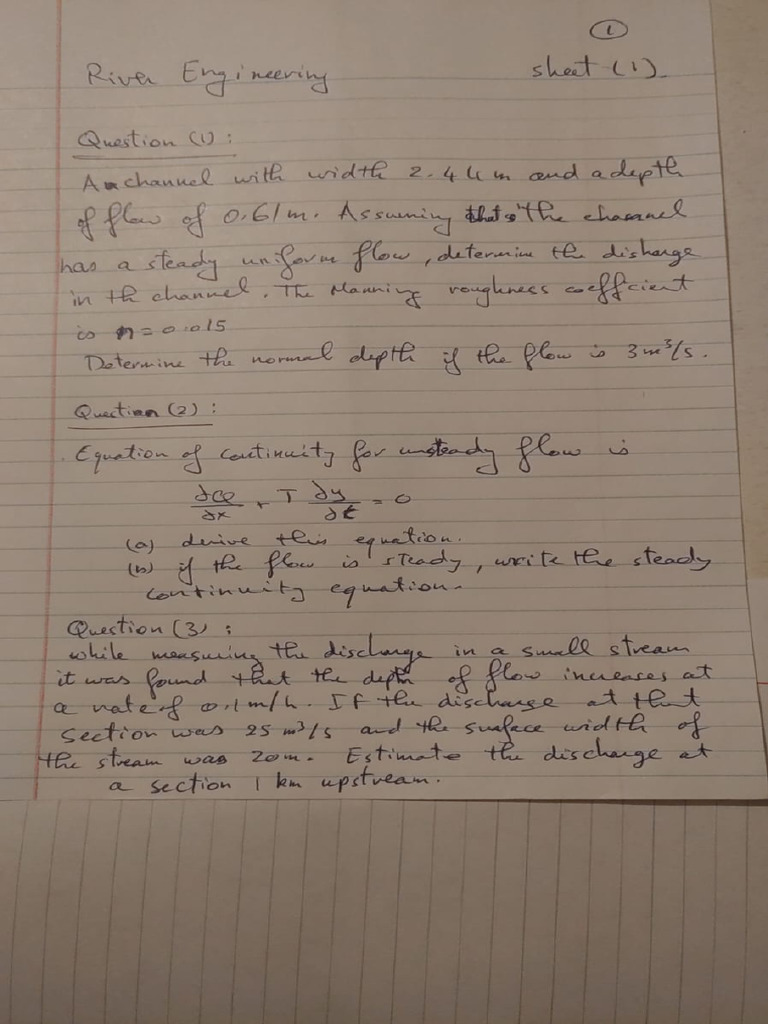 ①
River Engineering sheet (1)
Question (1) :
A channel with width 2.44 m and a depth
of flow of 0.61 m. Assuming that the channel
has a steady uniform flow, determine the disharge
in th channel. The Manning roughness coeffcient
is n = 0.015
Determine the normal depth if the flow is 3 m³/s.
Question (2) :
Equation of continuity for unsteady flow is
∂Q/∂x + T ∂y/∂t = 0
(a) derive this equation.
(b) if the flow is steady, write the steady
continuity equation.
Question (3) :
while measuring the discharge in a small stream
it was found that the depth of flow increases at
a rate of 0.1 m/h. If the discharge at that
section was 25 m³/s and the surface width of
the stream was 20m. Estimate the discharge at
a section 1 km upstream.